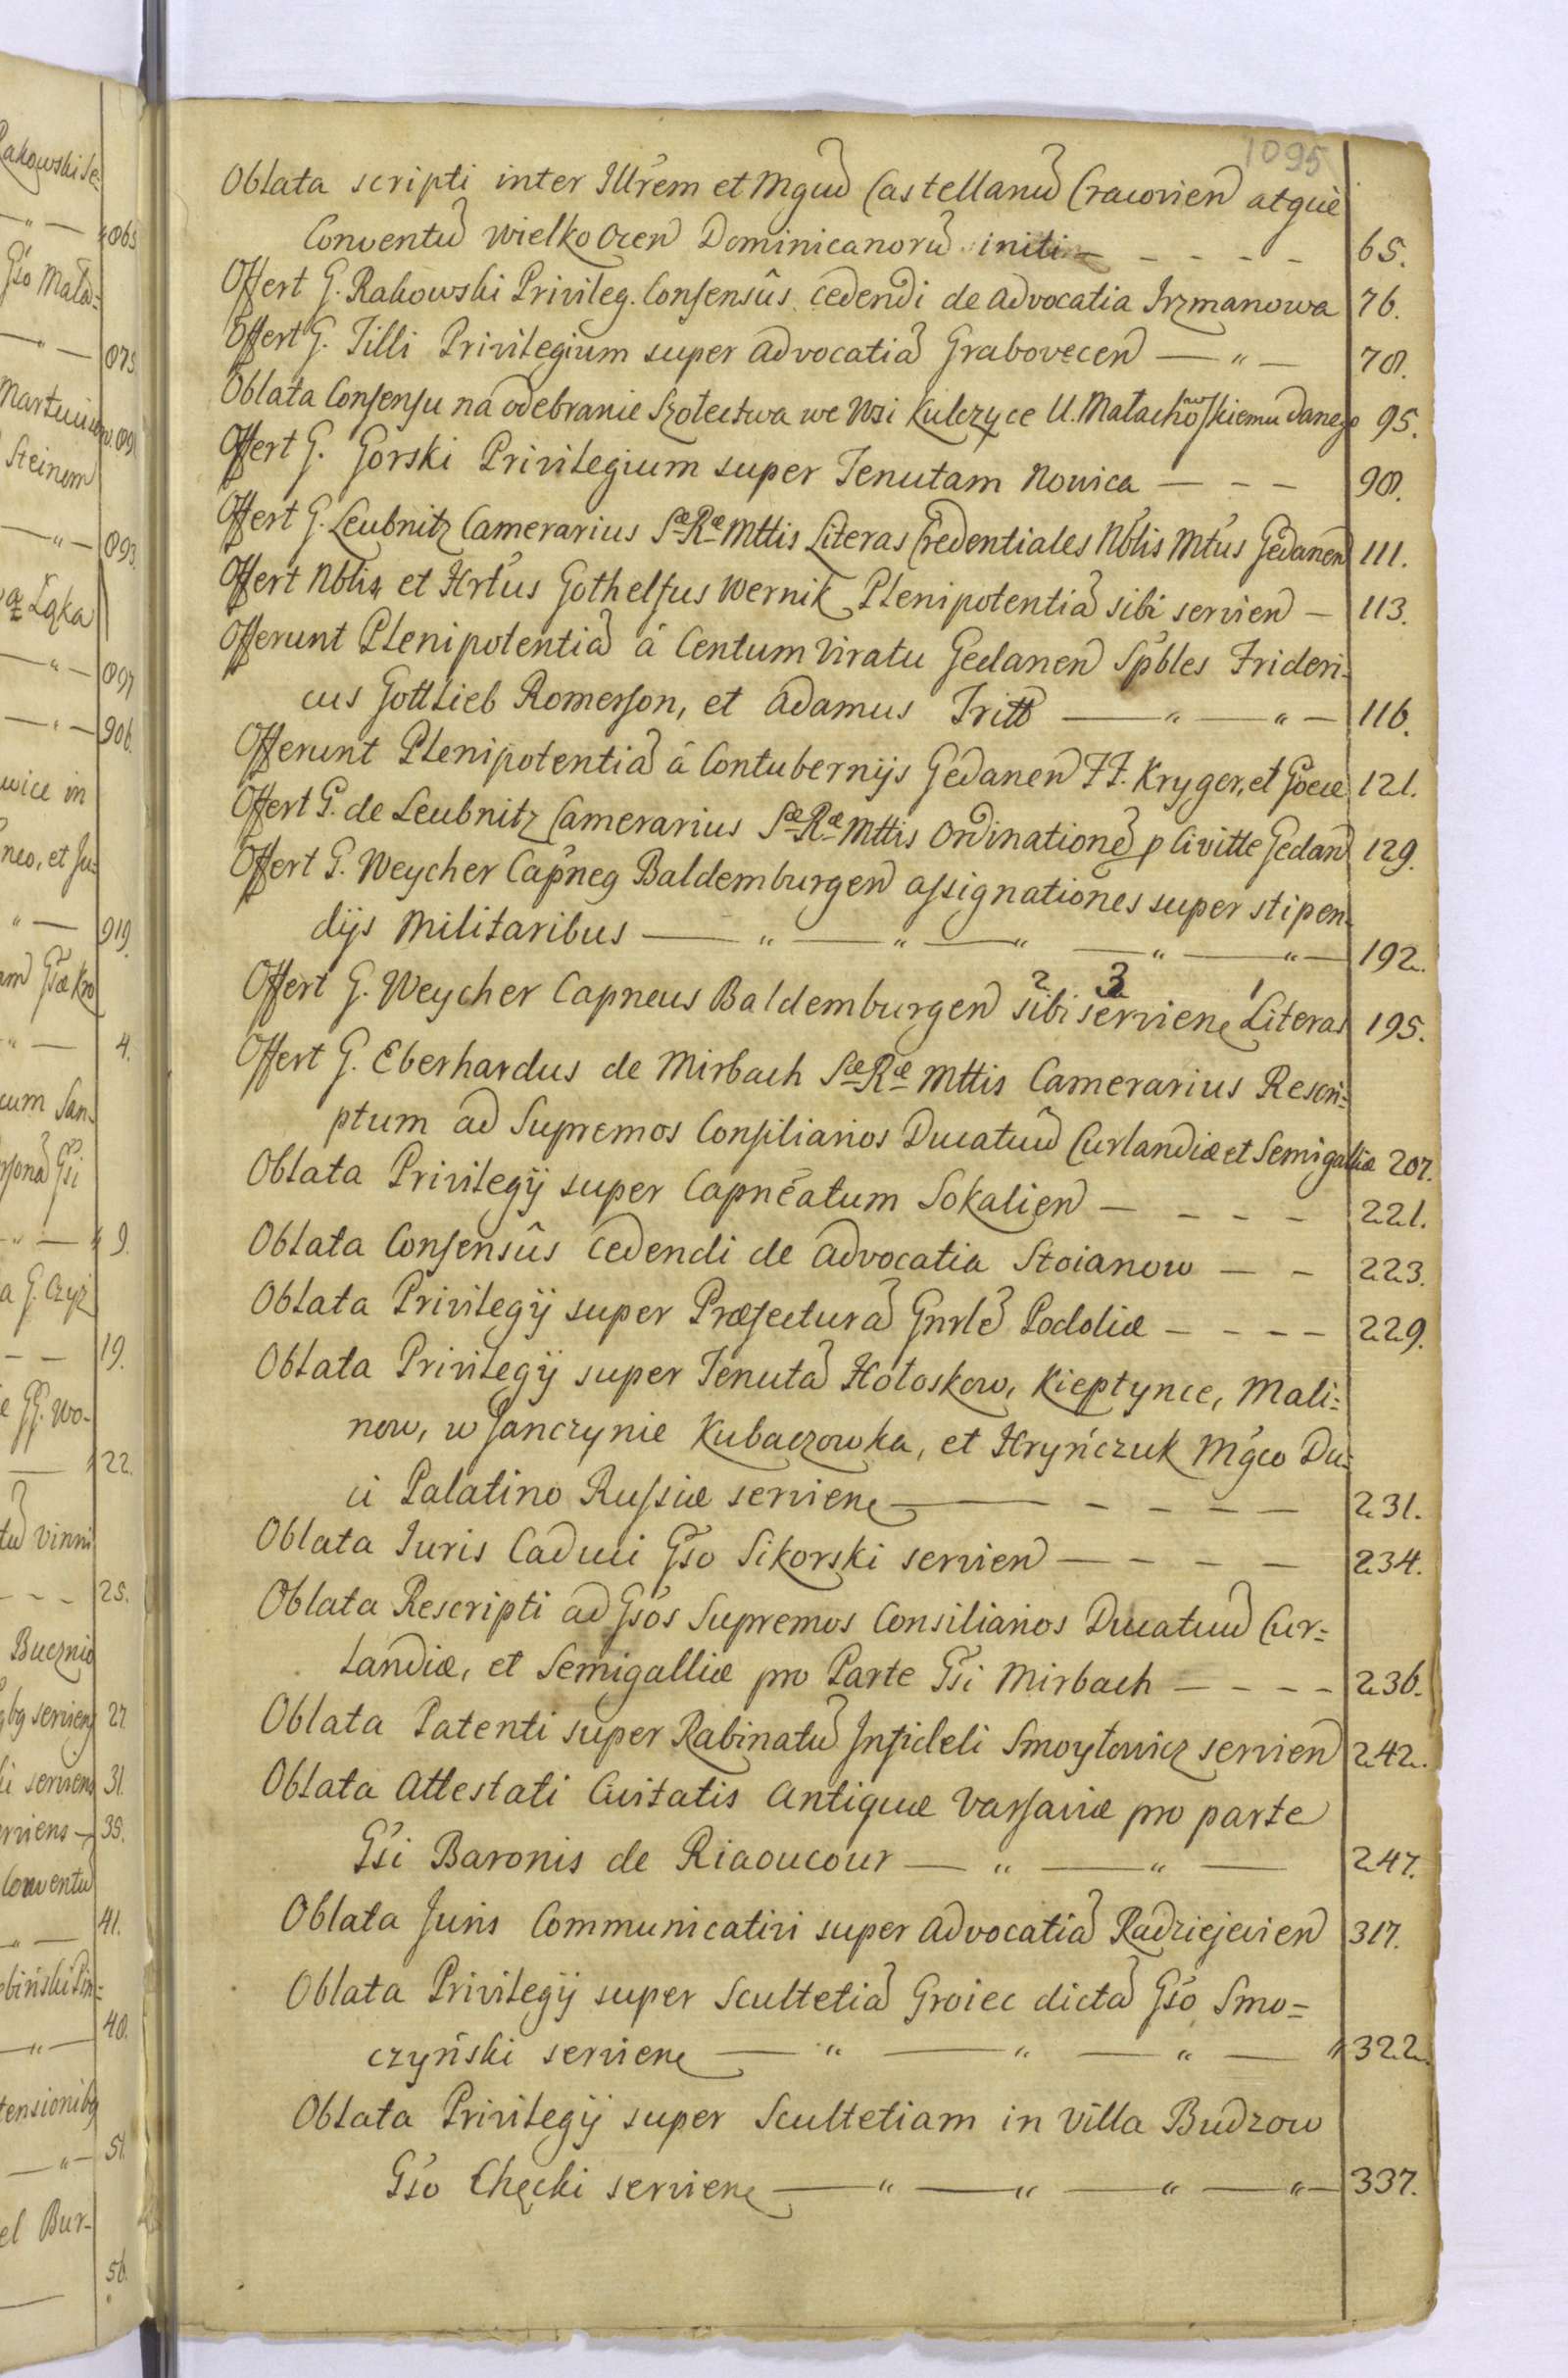 1095
Oblata scripti inter Illrem et Mgud Castellanud Cracovien atque
Conventud Wielko Ocen Dominicanorud initi - - - - - 65.
Offert G. Rakowski Privileg. Consensûs cedendi de Advocatia Irzmanowa 76.
Offert G. Tilli Privilegium super Advocatiã Grabovecen — " — 78.
Oblata Consensu na odebranie Szołectwa we Wsi Kulczyce U. Małachowskiemu danego 95.
Offert G. Gorski Privilegium super Tenutam Nowica — - — 98.
Offert G. Leubnitz Camerarius Sæ Ræ Mttis Literas Credentiales Nblis Mtus Gedanen 111.
Offert Nblis et Hrtus Gothelfus Wernik Plenipotentiã sibi servien — 113.
Offerunt Plenipotentiã á Centum Viratu Gedanen Spbles Frideri-
cus Gottlieb Romerson, et Adamus Tritt — " — " — 116.
Offerunt Plenipotentiã á Contubernijs Gedanen FF. Kryger, et Goece 121.
Offert G. de Leubnitz Camerarius Sæ Ræ Mttis Ordinationẽ p Civitte Gedan 129.
Offert G. Weycher Capneg Baldemburgen assignationes super stipen-
dijs Militaribus — " — " — " — " — " — 192.
Offert G. Weycher Capneus Baldemburgen 2 sibi 3 serviene 1 Literas 195.
Offert G. Eberhardus de Mirbach Sæ Ræ Mttis Camerarius Rescri=
ptum ad Supremos Consiliarios Ducatuud Curlandiæ et Semigalliæ 207.
Oblata Privilegij super Capneatum Sokalien — - - - 221.
Oblata Consensûs cedendi de Advocatia Stoianow — - 223.
Oblata Privilegij super Præfecturã Gnrlẽ Podoliæ - - - - 229.
Oblata Privilegij super Tenutã Hołoskow, Kieptynce, Mali=
now, w Janczynie Kubaczowka, et Hryńczuk Mgco Du=
ci Palatino Russiæ serviene — - - - — 231.
Oblata Iuris Caduci Gso Sikorski servien — - - — 234.
Oblata Rescripti ad Gsos Supremos Consiliarios Ducatuud Cur=
landiæ, et Semigalliæ pro Parte Gsi Mirbach — - - - 236.
Oblata Patenti super Rabinatud Infideli Smoylowicz servien 242.
Oblata Attestati Civitatis Antiquæ Varsaviæ pro parte
Gsi Baronis de Riaoucour — " — " — 247.
Oblata Juris Communicativi super Advocatiã Radziejevien 317.
Oblata Privilegij super Scultetiã Groiec dictã Gso Smo=
czyński serviene — " — " — " — 322.
Oblata Privilegij super Scultetiam in Villa Budzow
Gso Chęcki serviene — " — " — " — " — 337.